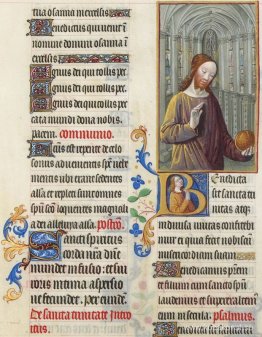 tua osanna in excelsis
Benedictus qui venit in
nomine domini osanna in
excelsis
Agnus dei qui tollis pec
Agnus dei qui tollis pec
Agnus dei qui tollis pec
cata mundi dona nobis
pacem. communio.
est repente de celo
sonus advenientis
mentis ubi erant sedentes
alla et repleti sunt omnes
spū scō loquentes magnali
a dei alleluya alla. postco
Sancti spiritus
corda
mundet infusio: et sui
roris intima aspersio
ne fecundet. per
De sancta trinitate Intro
itus.
Benedicta
sit sancta tri
nitas atq
indivisa unitas confitebi
mur ei quia fecit nobiscum
misericordiam suam
Benedicamus
et filium cum sancto
laudemus et
eum in psalmus.
Benedicta sit sancta